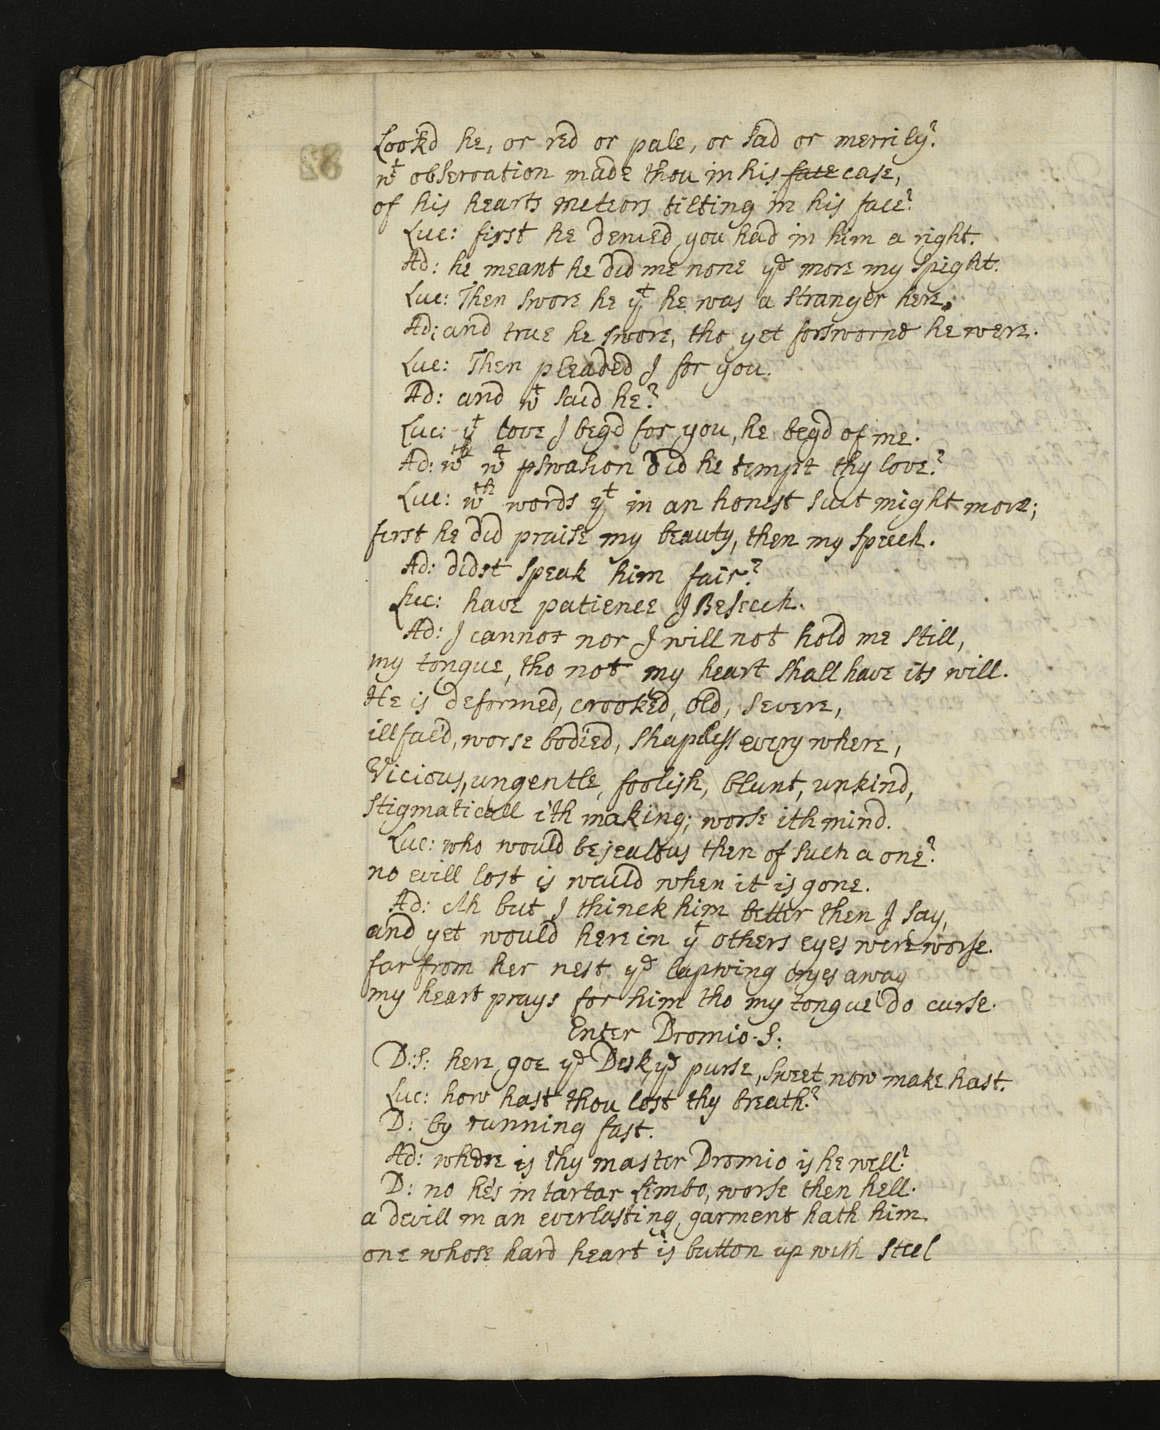 Look'd he, or red or pale, or sad or merrily?
wt observation made thou in his fate case,
of his hearts meteors tilting in his face?
Luc: first he denied you had in him a right.
Ad: he meant he did me none ye more my spight.
Luc: Then swore he yt he was a stranger here.
Ad: and true he swore, tho yet forsworne he were.
Luc: Then pleaded I for you.
Ad: and wt said he?
Luc: yt love I beg'd for you, he begd of me.
Ad: wth wt pswasion did he tempt thy love?
Luc: wth words yt in an honest suit might move;
first he did praise my beauty, then my speech.
Ad: didst speak him fair?
Luc: have patience I Beseech.
Ad: I cannot nor I will not hold me still,
my tongue, tho not my heart shall have its will.
He is deformed, crooked, old, severe,
ill fac'd, worse bodied, shapless every where,
Vicious, ungentle, foolish, blunt, unkind,
stigmaticall ith making; worse ith mind.
Luc: who would be jealous then of such a one?
no evill lost is waild when it is gone.
Ad: Ah but I thinck him better then I say,
and yet would herein yt others eyes were worse.
far from her nest ye lapwing cryes away
my heart prays for him tho my tongue do curse.
Enter Dromio. S:
D:S: here goe ye Desk ye purse, sweet now make hast.
Luc: how hast thou lost thy breath?
D: by running fast.
Ad: where is thy master Dromio is he well?
D: no he's in tartar Limbo, worse then hell.
a devill in an everlasting garment hath him
one whose hard heart is button up with steel